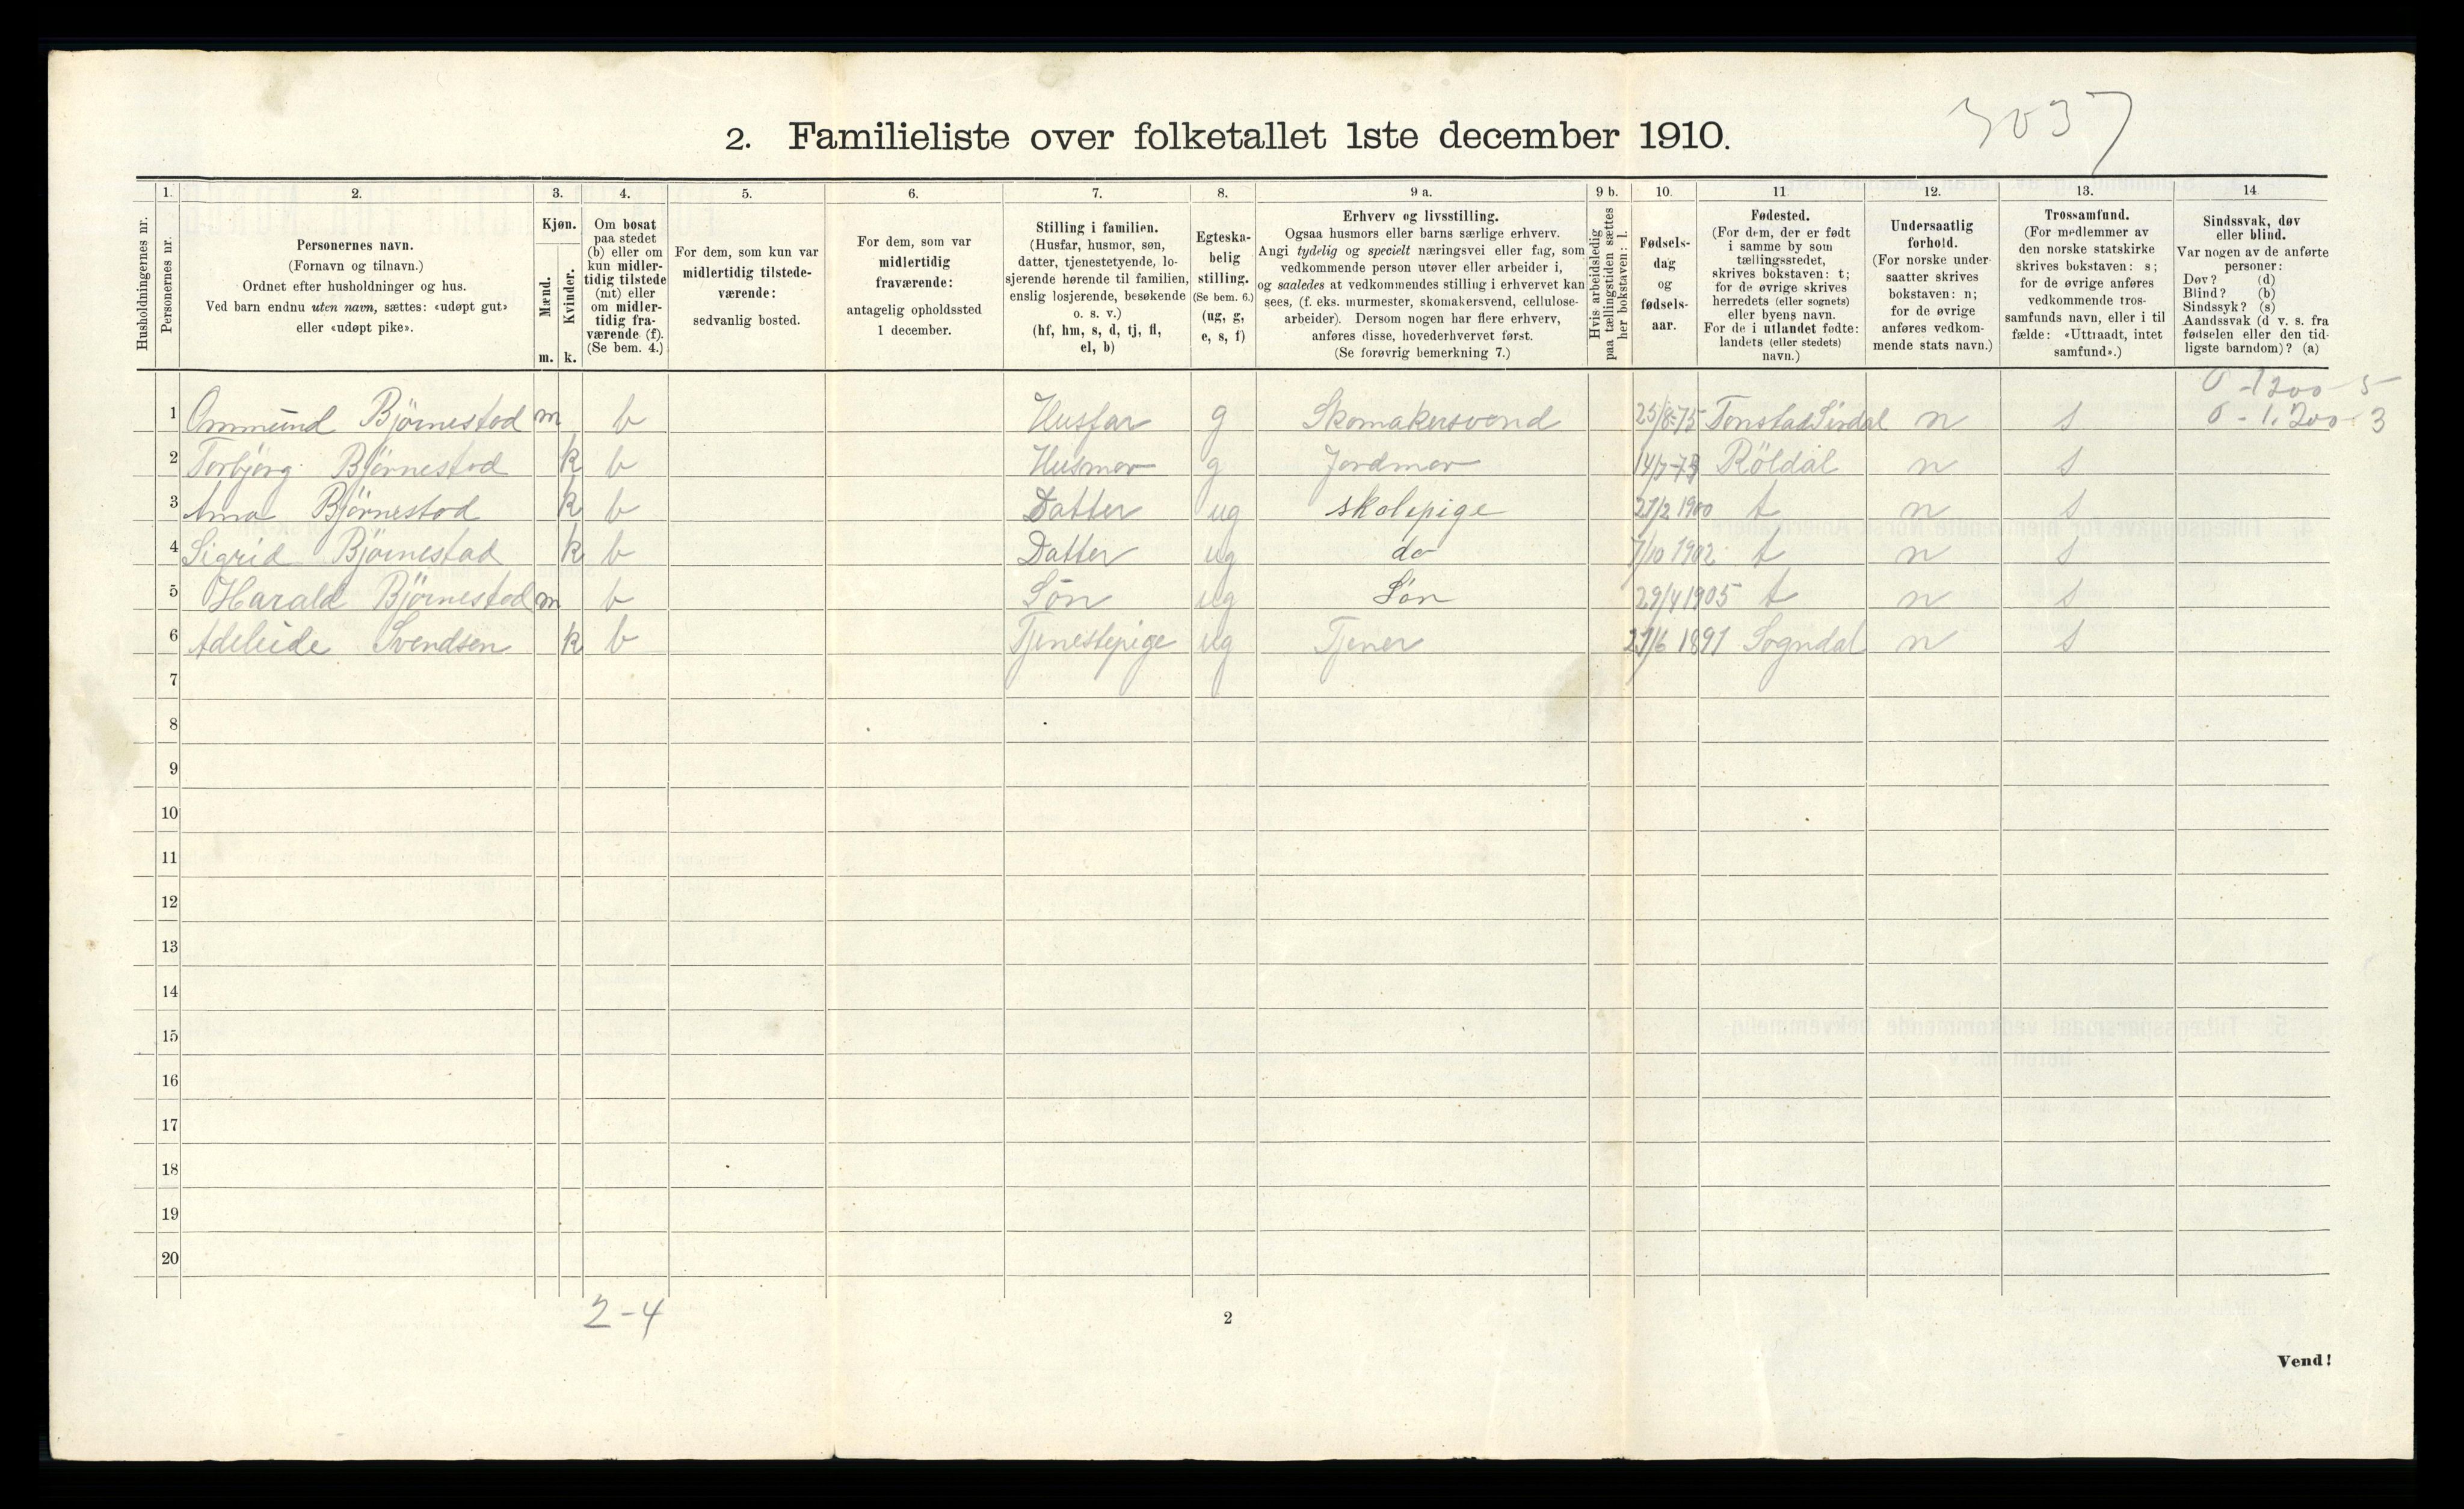 3037
2. Familieliste over folketallet 1ste december 1910.
1. 2. 3. 4. 5. 6. 7. 8. 9 a. 9 b. 10. 11. 12. 13. 14
Husholdningernes nr.
Personernes nr.
Personernes navn.
(Fornavn og tilnavn.)
Ordnet efter husholdninger og hus.
Ved barn endnu uten navn, sættes: «udøpt gut»
eller «udøpt pike».
Kjøn.
Mænd.
Kvinder.
m. k.
Om bosat
paa stedet
(b) eller om
kun midler-
tidig tilstede
(mt) eller
om midler-
tidig fra-
værende (f).
(Se bem. 4.)
For dem, som kun var
midlertidig tilstede-
værende:
sedvanlig bosted.
For dem, som var
midlertidig
fraværende:
antagelig opholdssted
1 december.
Stilling i familien.
(Husfar, husmor, søn,
datter, tjenestetyende, lo-
sjerende hørende til familien,
enslig losjerende, besøkende
o. s. v.)
(hf, hm, s, d, tj, fl,
el, b)
Egteska-
belig
stilling.
(Se bem. 6.)
(ug, g,
e, s, f)
Erhverv og livsstilling.
Ogsaa husmors eller barns særlige erhverv.
Angi tydelig og specielt næringsvei eller fag, som
vedkommende person utøver eller arbeider i,
og saaledes at vedkommendes stilling i erhvervet kan
sees, (f. eks. murmester, skomakersvend, cellulose-
arbeider). Dersom nogen har flere erhverv,
anføres disse, hovederhvervet først.
(Se forøvrig bemerkning 7.)
Hvis arbeidsledig
paa tællingstiden sættes
her bokstaven: l.
Fødsels-
dag
og
fødsels-
aar.
Fødested.
(For dem, der er født
i samme by som
tællingsstedet,
skrives bokstaven: t;
for de øvrige skrives
herredets (eller sognets)
eller byens navn.
For de i utlandet fødte:
landets (eller stedets)
navn.)
Undersaatlig
forhold.
(For norske under-
saatter skrives
bokstaven: n;
for de øvrige
anføres vedkom-
mende stats navn.)
Trossamfund.
(For medlemmer av
den norske statskirke
skrives bokstaven: s;
for de øvrige anføres
vedkommende tros-
samfunds navn, eller i til
fælde: «Uttraadt, intet
samfund».)
Sindssvak, døv
eller blind.
Var nogen av de anførte
personer:
Døv? (d)
Blind? (b)
Sindssyk? (s)
Aandssvak (d v. s. fra
fødselen eller den tid-
ligste barndom)? (a)
0 - 1200 - 5
1 Ommund Björnestad m b Husfar g Skomakersvend 25/8-75 Tonstad Sirdal n s 0 - 1.200 - 3
2 Torbjörg Björnestad k b Husmor g Jordmor Röldal n s
3 Anna Björnestad k b Datter ug skolepige 27/2 1900 t n s
4 Sigrid Björnestad k b Datter ug do 7/10 1902 t n s
5 Harald Björnestad m b Sön ug Sön 29/4 1905 t n s
6 Adeleide Svendsen k b Tjenestepige ug Tjener 27/6 1891 Sogndal n s
7
8
9
10
11
12
13
14
15
16
17
18
19
20
2-4
2
Vend!